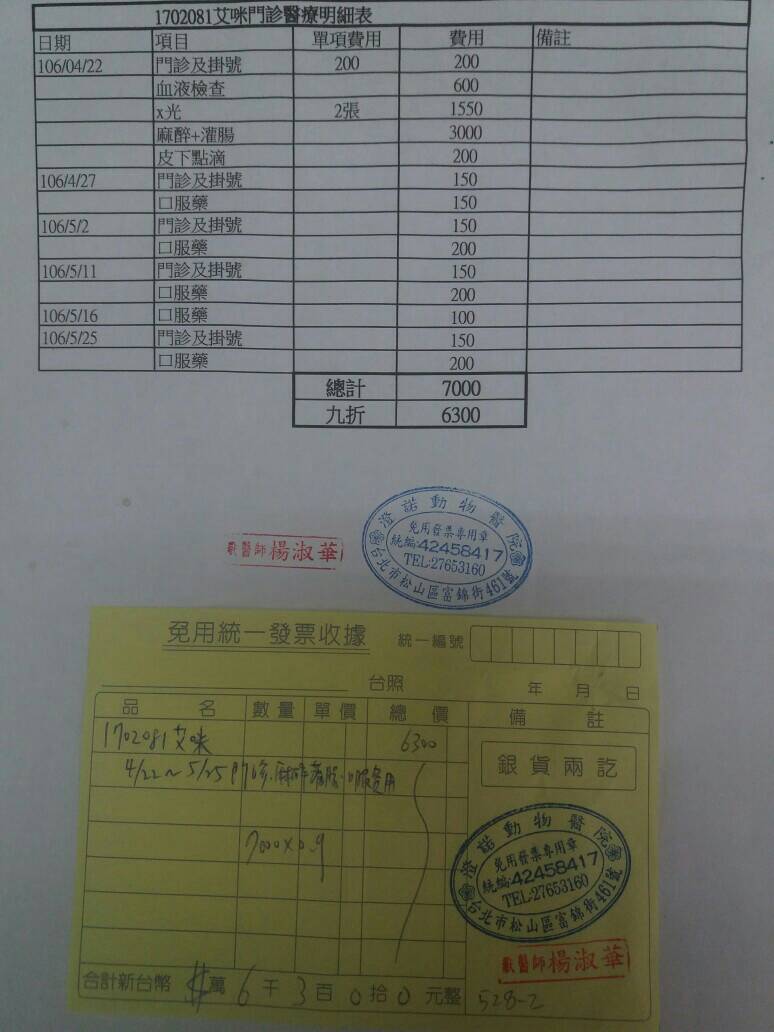 1702081艾咪門診醫療明細表
日期 項目 單項費用 費用 備註
106/04/22 門診及掛號 200 200
血液檢查 600
x光 2張 1550
麻醉+灌腸 3000
皮下點滴 200
106/4/27 門診及掛號 150
口服藥 150
106/5/2 門診及掛號 150
口服藥 200
106/5/11 門診及掛號 150
口服藥 200
106/5/16 口服藥 100
106/5/25 門診及掛號 150
口服藥 200
總計 7000
九折 6300
獸醫師楊淑華
澄諾動物醫院
免用發票專用章
統編:42458417
TEL:27653160
台北市松山區富錦街461號
免用統一發票收據 統一編號
台照 年 月 日
品名 數量 單價 總價 備註
1702081艾咪 6300
銀貨兩訖
4/22~5/25門診.麻醉灌腸.口服費用
7000×0.9
澄諾動物醫院
免用發票專用章
統編:42458417
TEL:27653160
台北市松山區富錦街461號
獸醫師楊淑華
合計新台幣 萬6千3百0拾0元整
528-2